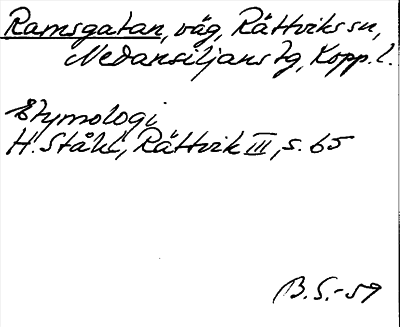 Ramsgatan, väg, Rättviks sn,
Nedansiljans tg, Kopp. l.
Etymologi
H. Ståhl, Rättvik III, s. 65
B. S. -59